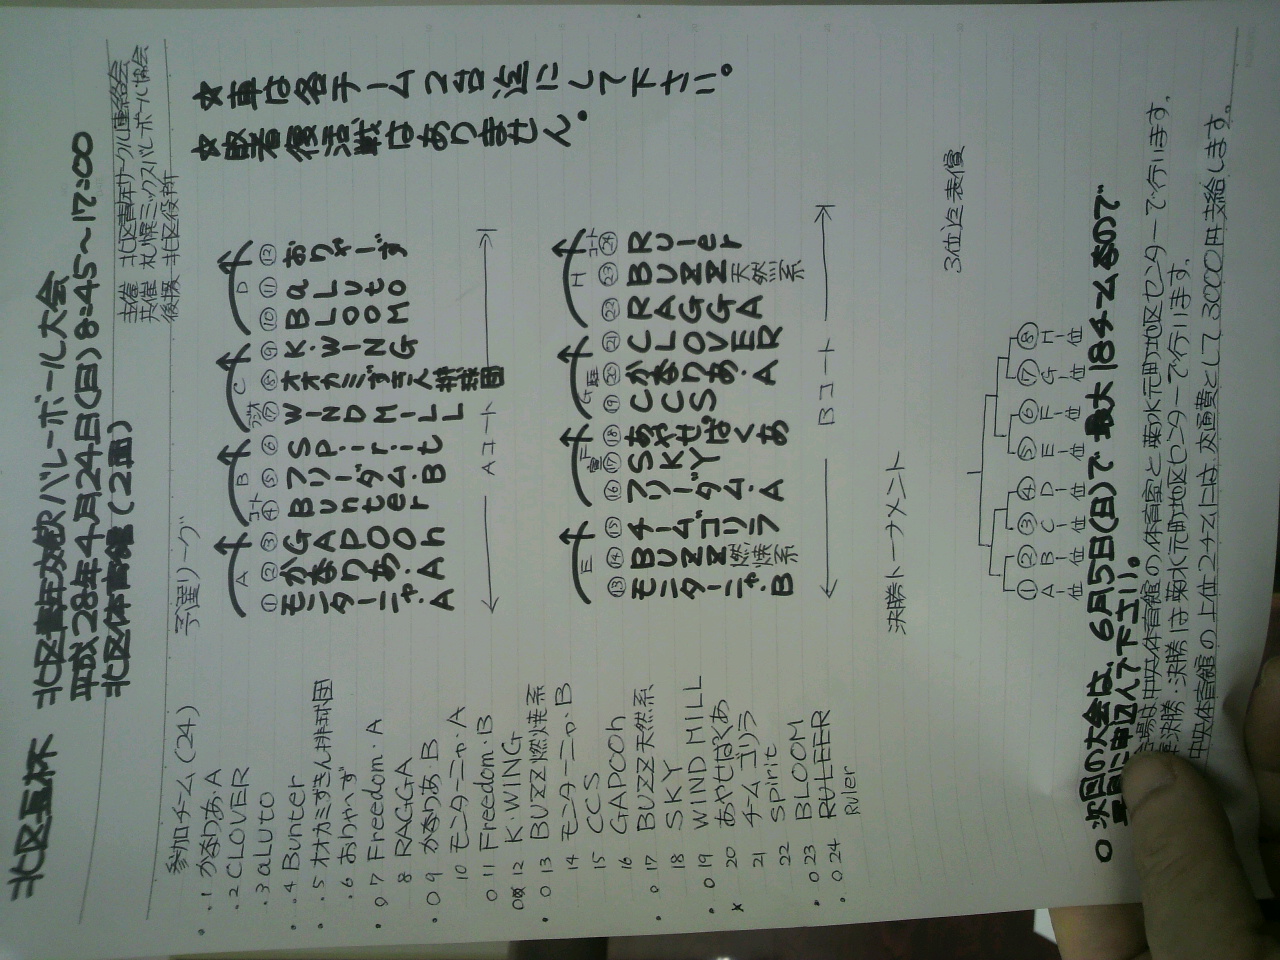 北区長杯 北区青年交歓バレーボール大会
平成28年4月24日(日)8:45～17:00
北区体育館(2面)
主催 北区青年サークル連絡会
共催 札幌ミックスバレーボール協会
後援 北区役所
参加チーム(24)
1 かなりあ・A
2 CLOVER
3 aLuto
4 Bunter
5 オオカミずきん排球団
6 おりゃーず
7 Freedom・A
8 RAGGA
9 かなりあ・B
10 モンターニャ・A
11 Freedom・B
12 K・WING
13 BUZZ燃焼系
14 モンターニャ・B
15 CCS
16 GAPOOh
17 BUZZ天然系
18 SKY
19 WIND MILL
20 あやせぱくあ
21 チームゴリラ
22 Spirit
23 BLOOM
24 RULEER
Ruler
予選リーグ
A B C D
① モンターニャ・A
② かなりあ・A
③ GAPOOh
④ Bunter
⑤ フリーダム・B
⑥ Spirit
⑦ WINDMILL
⑧ オオカミずきん排球団
⑨ K・WING
⑩ BLOOM
⑪ aLuto
⑫ おりゃーず
Aコート
E F G H
⑬ モンターニャ・B
⑭ BUZZ燃焼系
⑮ チームゴリラ
⑯ フリーダム・A
⑰ SKY
⑱ あやせぱくあ
⑲ CCS
⑳ かなりあ・A
㉑ CLOVER
㉒ RAGGA
㉓ BUZZ天然系
㉔ Ruler
Bコート
☆車は各チーム2台迄にして下さい。
☆敗者復活戦はありません。
決勝トーナメント
3位迄表償
① ② ③ ④ ⑤ ⑥ ⑦ ⑧
A B C D E F G H
位 位 位 位 位 位 位 位
○次回の大会は、6月5日(日)で最大18チームなので
早目に申込んで下さい。
会場は中央体育館の体育室と菊水元町地区センターで行います。
準決勝・決勝は菊水元町地区センターで行います。
中央体育館の上位2チームには交通費として3000円支給します。